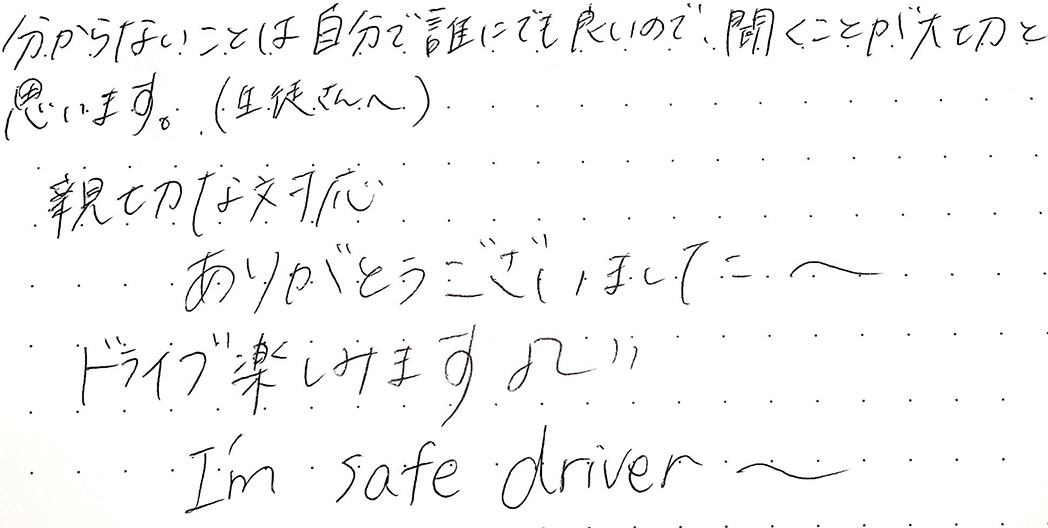 分からないことは自分で誰にでも良いので、聞くことが大切と
思います。(生徒さんへ)
親切な対応
ありがとうございました〜
ドライブ楽しみます♫))
I'm safe driver〜